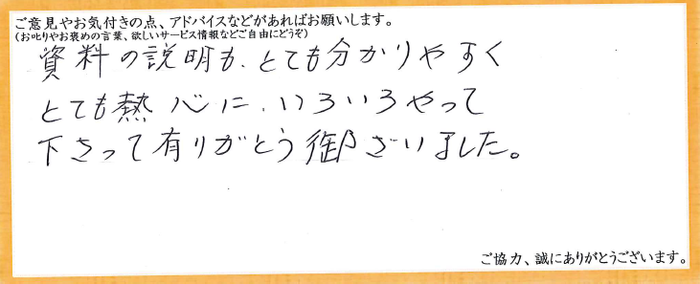 ご意見やお気付きの点、アドバイスなどがあればお願いします。
(お叱りやお褒めの言葉、欲しいサービス情報などご自由にどうぞ)
資料の説明も、とても分かりやすく
とても熱心に、いろいろやって
下さって有りがとう御ざいました。
ご協力、誠にありがとうございます。